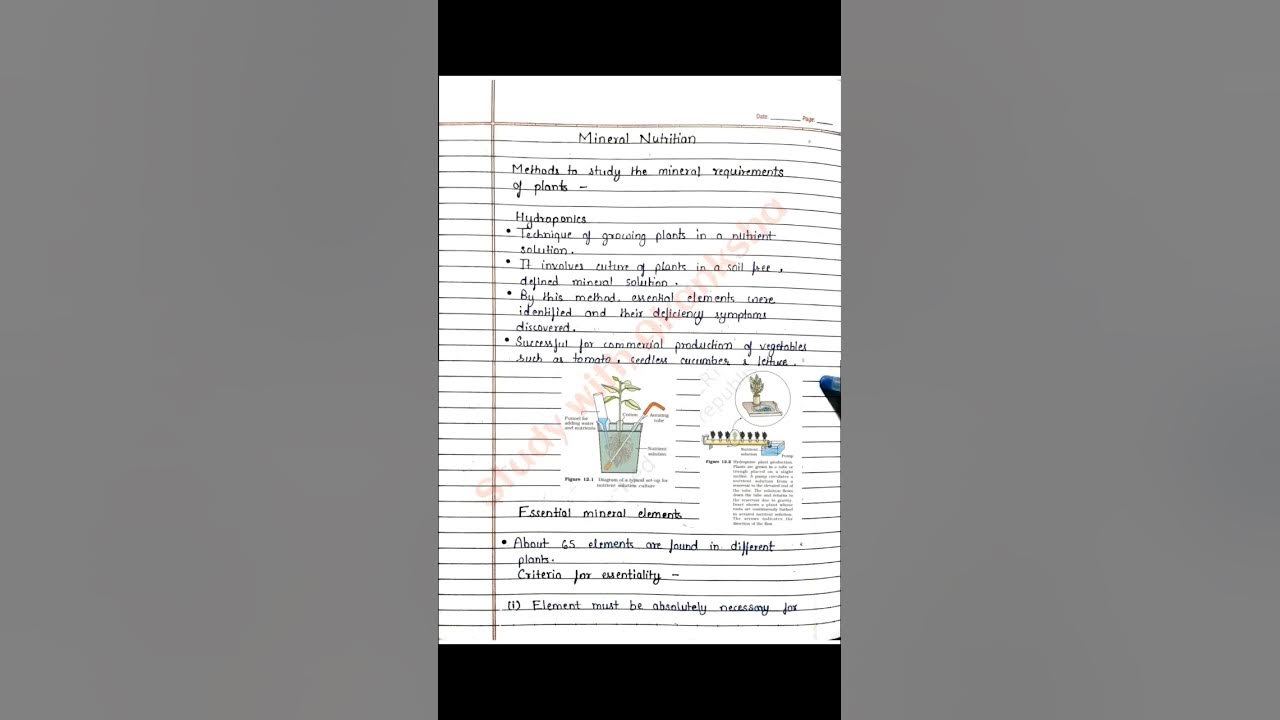 Date: ________ Page: ____
Mineral Nutrition
Methods to study the mineral requirements
of plants -
Hydroponics
• Technique of growing plants in a nutrient
solution.
• It involves cuture of plants in a soil free,
defined mineral solution.
• By this method, essential elements were
identified and their deficiency symptoms
discovered.
• Successful for commercial production of vegetables
such as tomato, seedless cucumber & lettuce.
Funnel for
adding water
and nutrients
Cotton
Aerating
tube
Nutrient
solution
Figure 12.1 Diagram of a typical set-up for
nutrient solution culture
Nutrient
solution
Pump
Figure 12.2 Hydroponic plant production.
Plants are grown in a tube or
trough placed on a slight
incline. A pump circulates a
nutrient solution from a
reservoir to the elevated end of
the tube. The solution flows
down the tube and returns to
the reservoir due to gravity.
Inset shows a plant whose
roots are continuously bathed
in aerated nutrient solution.
The arrows indicates the
direction of the flow.
Essential mineral elements
• About 65 elements are found in different
plants.
Criteria for essentiality -
(i) Element must be absolutely necessary for
study with